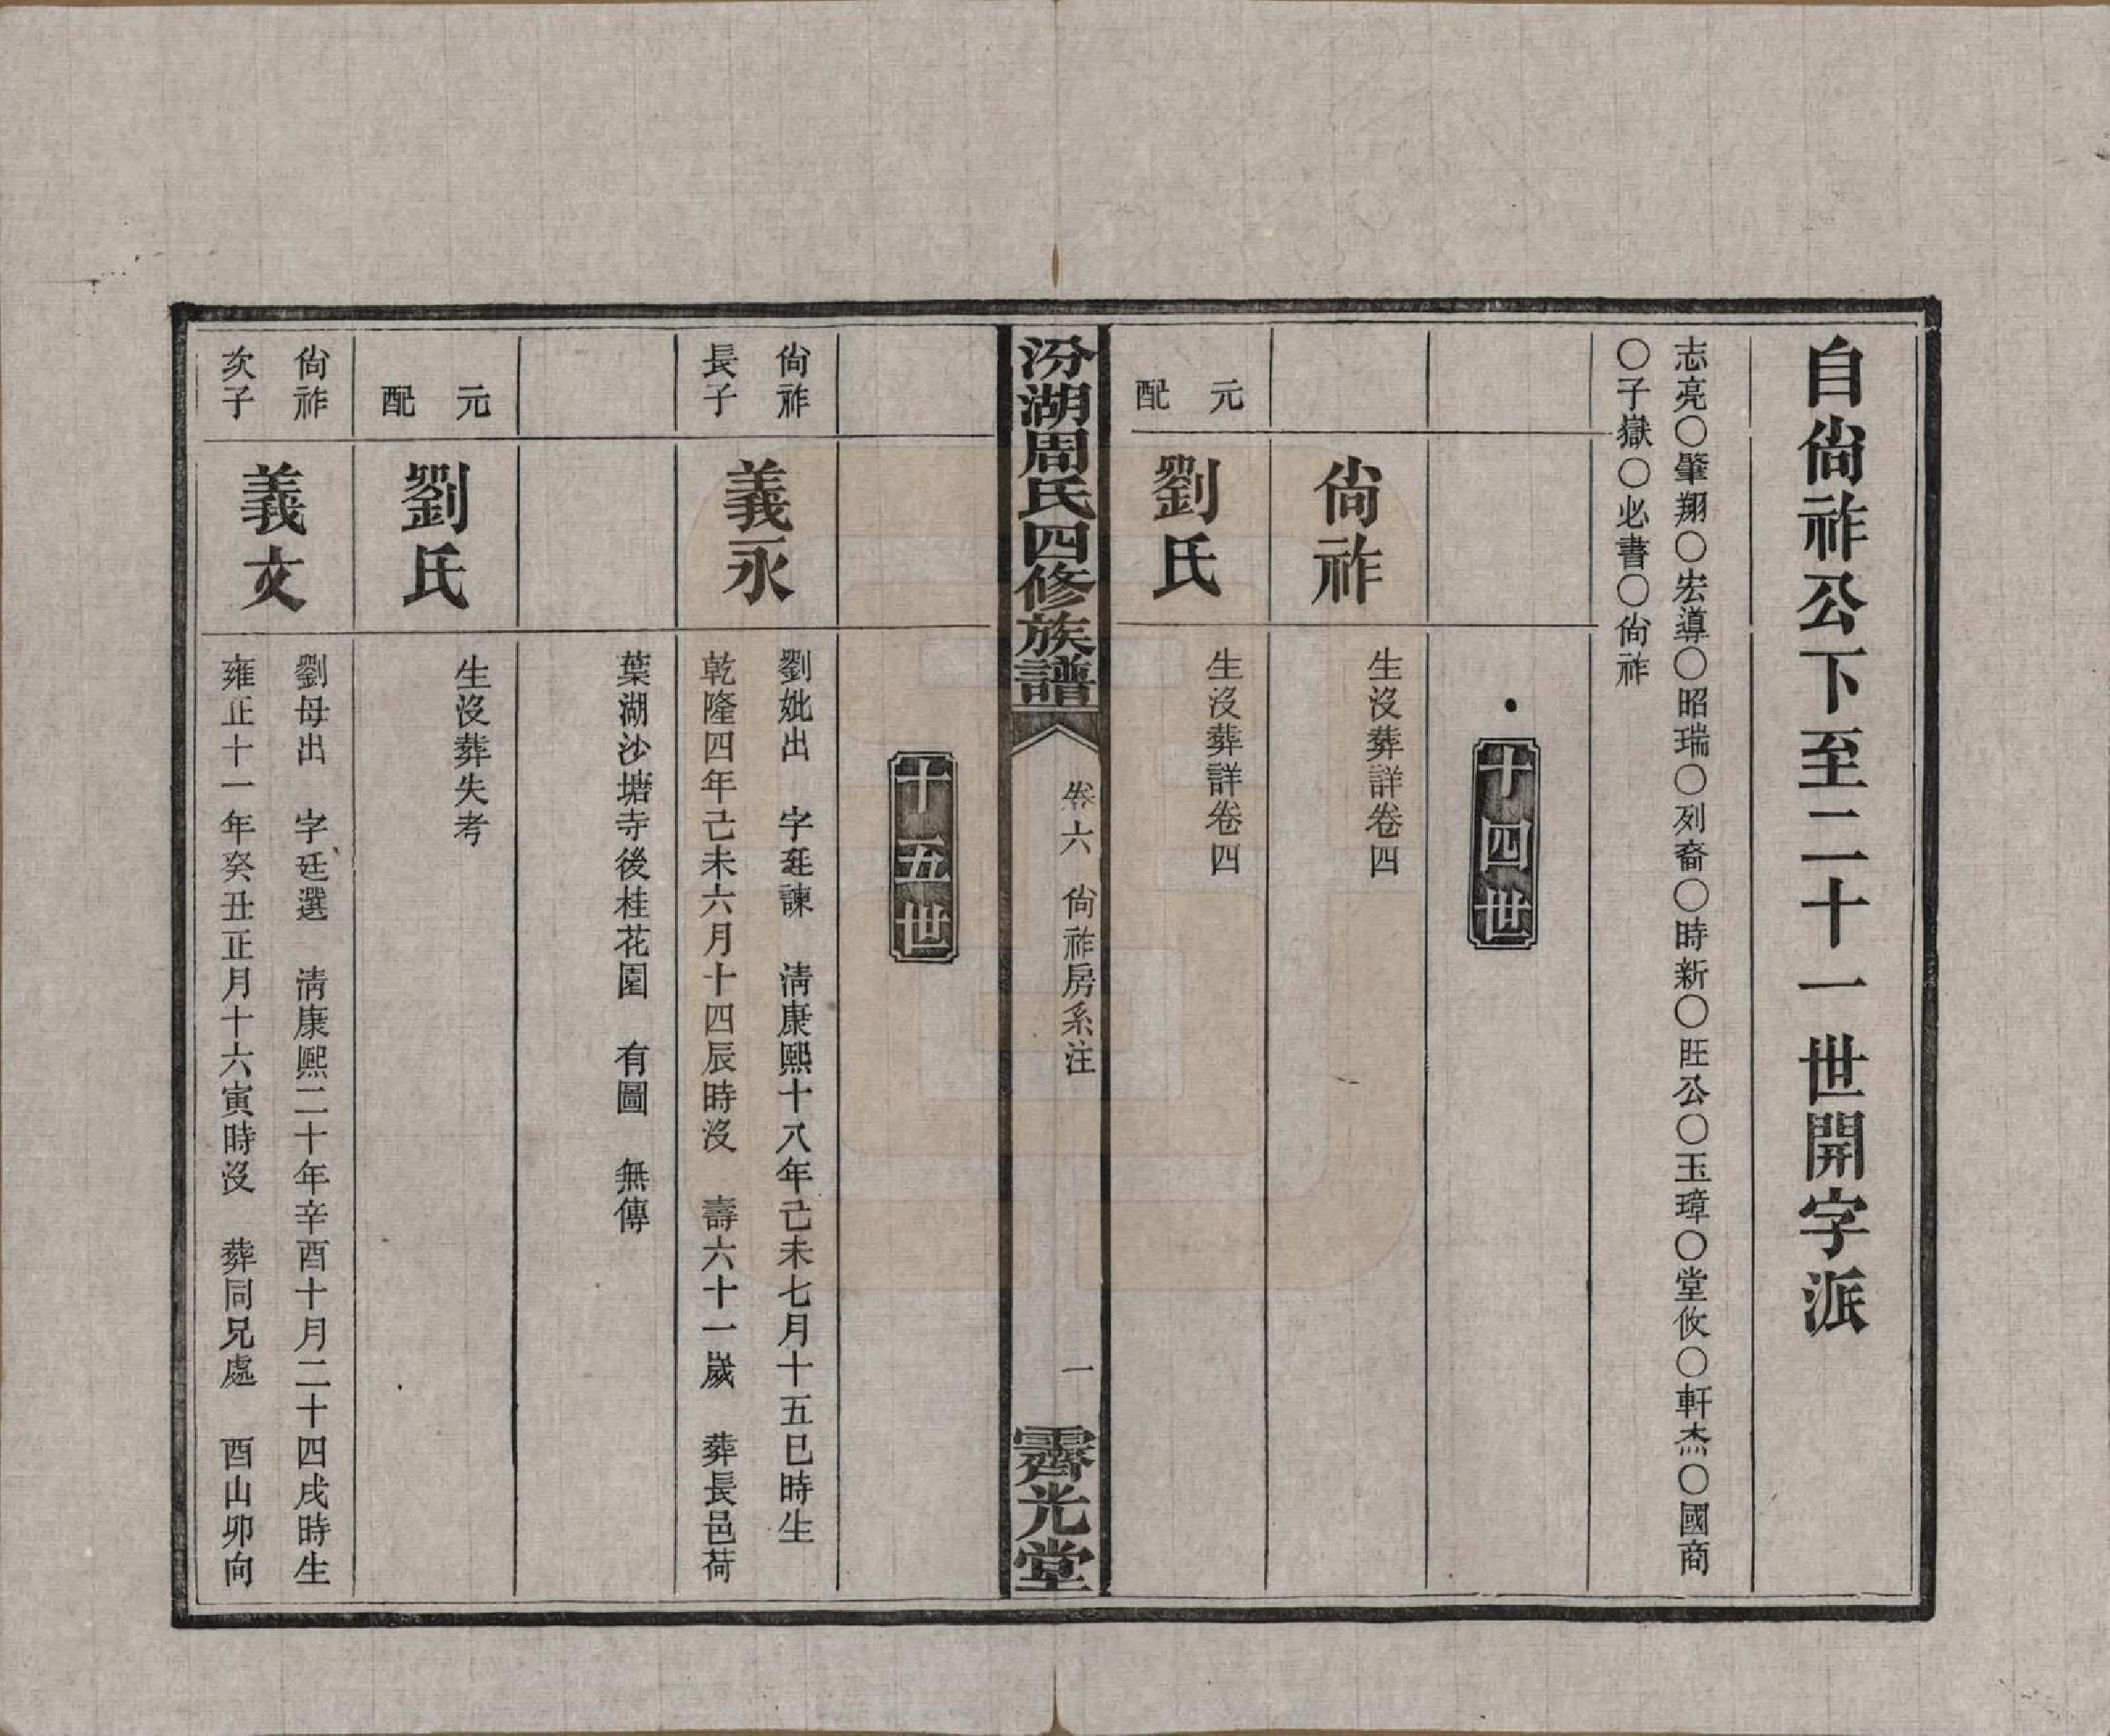 自尙祚公下至二十一世開字派
志亮○肇翔○宏導○昭瑞○列裔○時新○旺公○玉璋○堂攸○軒杰○國商
○子嶽○必書○尙祚
十四世
尙祚
生沒葬詳卷四
元配
劉氏
生沒葬詳卷四
汾湖周氏四修族譜
卷六 尙祚房系注
一
霽光堂
十五世
尙祚
長子
義永
劉妣出 字廷諫 淸康熙十八年己未七月十五巳時生
乾隆四年己未六月十四辰時沒 壽六十一歲 葬長邑荷
葉湖沙塘寺後桂花園 有圖 無傳
元配
劉氏
生沒葬失考
尙祚
次子
義文
劉母出 字廷選 淸康熙二十年辛酉十月二十四戌時生
雍正十一年癸丑正月十六寅時沒 葬同兄處 酉山卯向